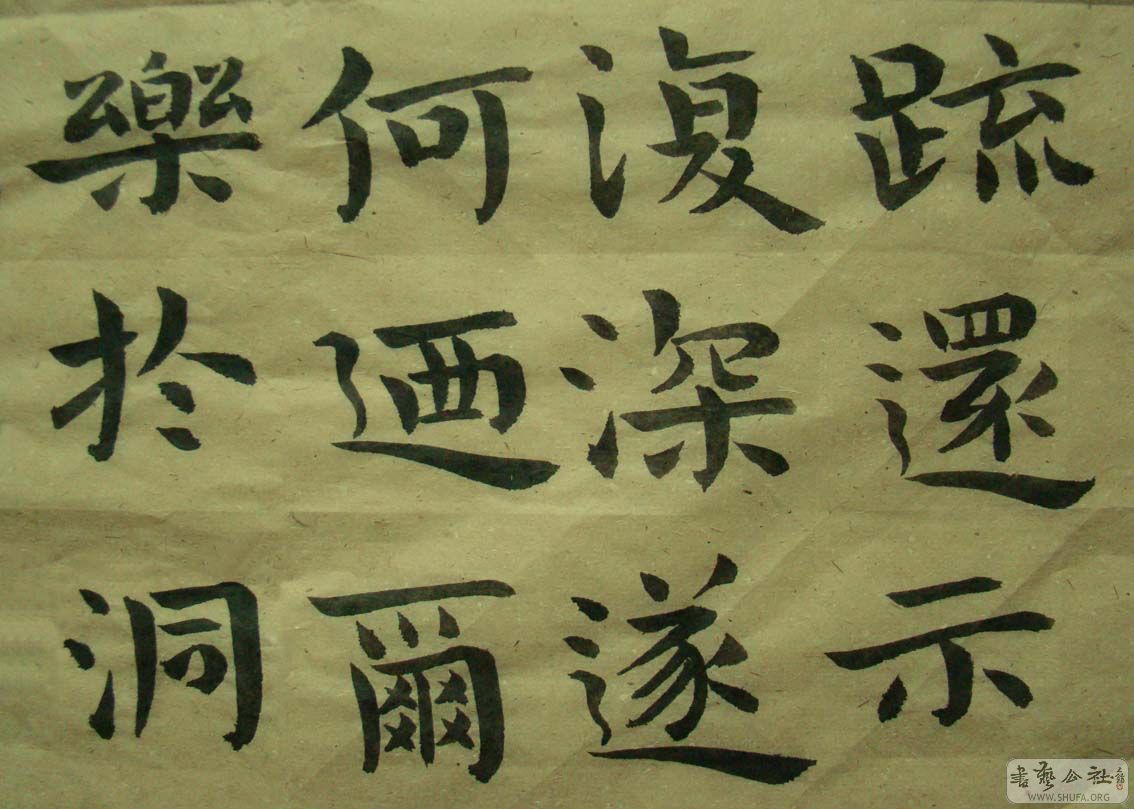 䟽還示
復深遂
何迺爾
樂於洞
書藝公社
WWW.SHUFA.ORG